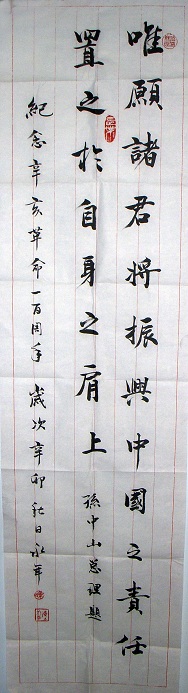 唯願諸君將振興中國之責任
置之於自身之肩上
孫中山總理題
紀念辛亥革命一百周年 歲次辛卯秋日永年